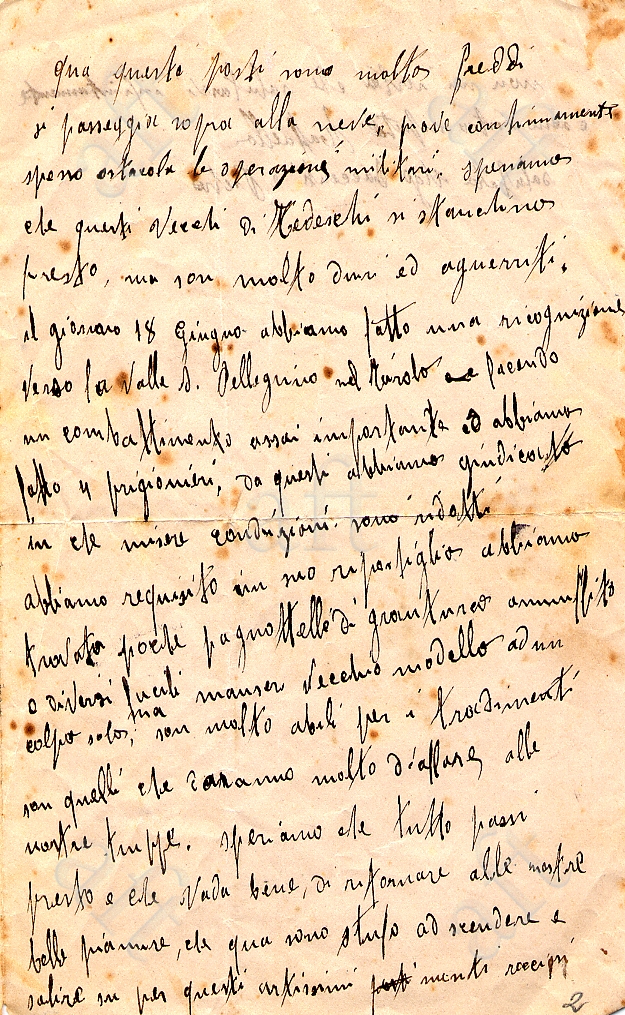 Qua questi posti sono molto freddi
si passeggia sopra alla neve, piove continuamente
spesso ostacola le operazione militari. speriamo
che questi vecchi di Tedeschi si stanchino
presto, ma son molto duri ed aguerriti.
il giorno 18 Giugno abbiamo fatto una ricognizione
verso la valle S. Pellegrino nel Tirolo facendo
un combattimento assai importante ed abbiamo
fatto 4 prigionieri, da questi abbiamo giudicato
in che misere condizioni sono ridotti
abbiamo requisito in suo ripostiglio abbiamo
trovato poche pagnottelle di granturco ammuffito
o diversi fucili mauser vecchio modello ad un
colpo solo, ma son molto abili per i tradimenti
son quelli che daranno molto d'affare alle
nostre truppe. speriamo che tutto passi
presto e che vada bene, di ritornare alle nostre
belle pianure, che qua sono stufo ad scendere e
salire su per questi artissimi monti
2